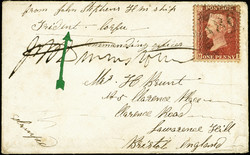 from John Stephens H M ship
Trident Corfu
Commanding officer
Mrs H Brunt
Clarence Place
Clarence Road
Lawrence Hill
Bristol England
ONE PENNY